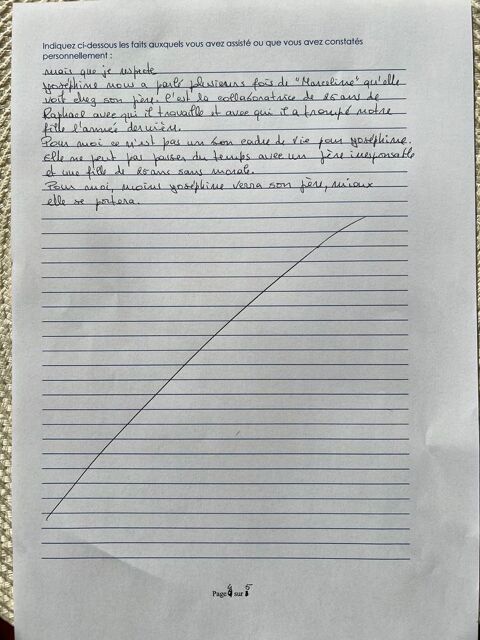 Indiquez ci-dessous les faits auxquels vous avez assisté ou que vous avez constatés
personnellement :
mais que je respecte
Joséphine nous a parlé plusieurs fois de "Marceline" qu'elle
voit chez son père. C'est la collaboratrice de 25 ans de
Raphael avec qui il travaille et avec qui il a trompé notre
fille l'année dernière.
Pour moi ce n'est pas un bon cadre de vie pour Joséphine.
Elle ne peut pas passer du temps avec un père irresponsable
et une fille de 25 ans sans morale.
Pour moi, moins Joséphine verra son père, mieux
elle se portera.
Page 4 sur 5